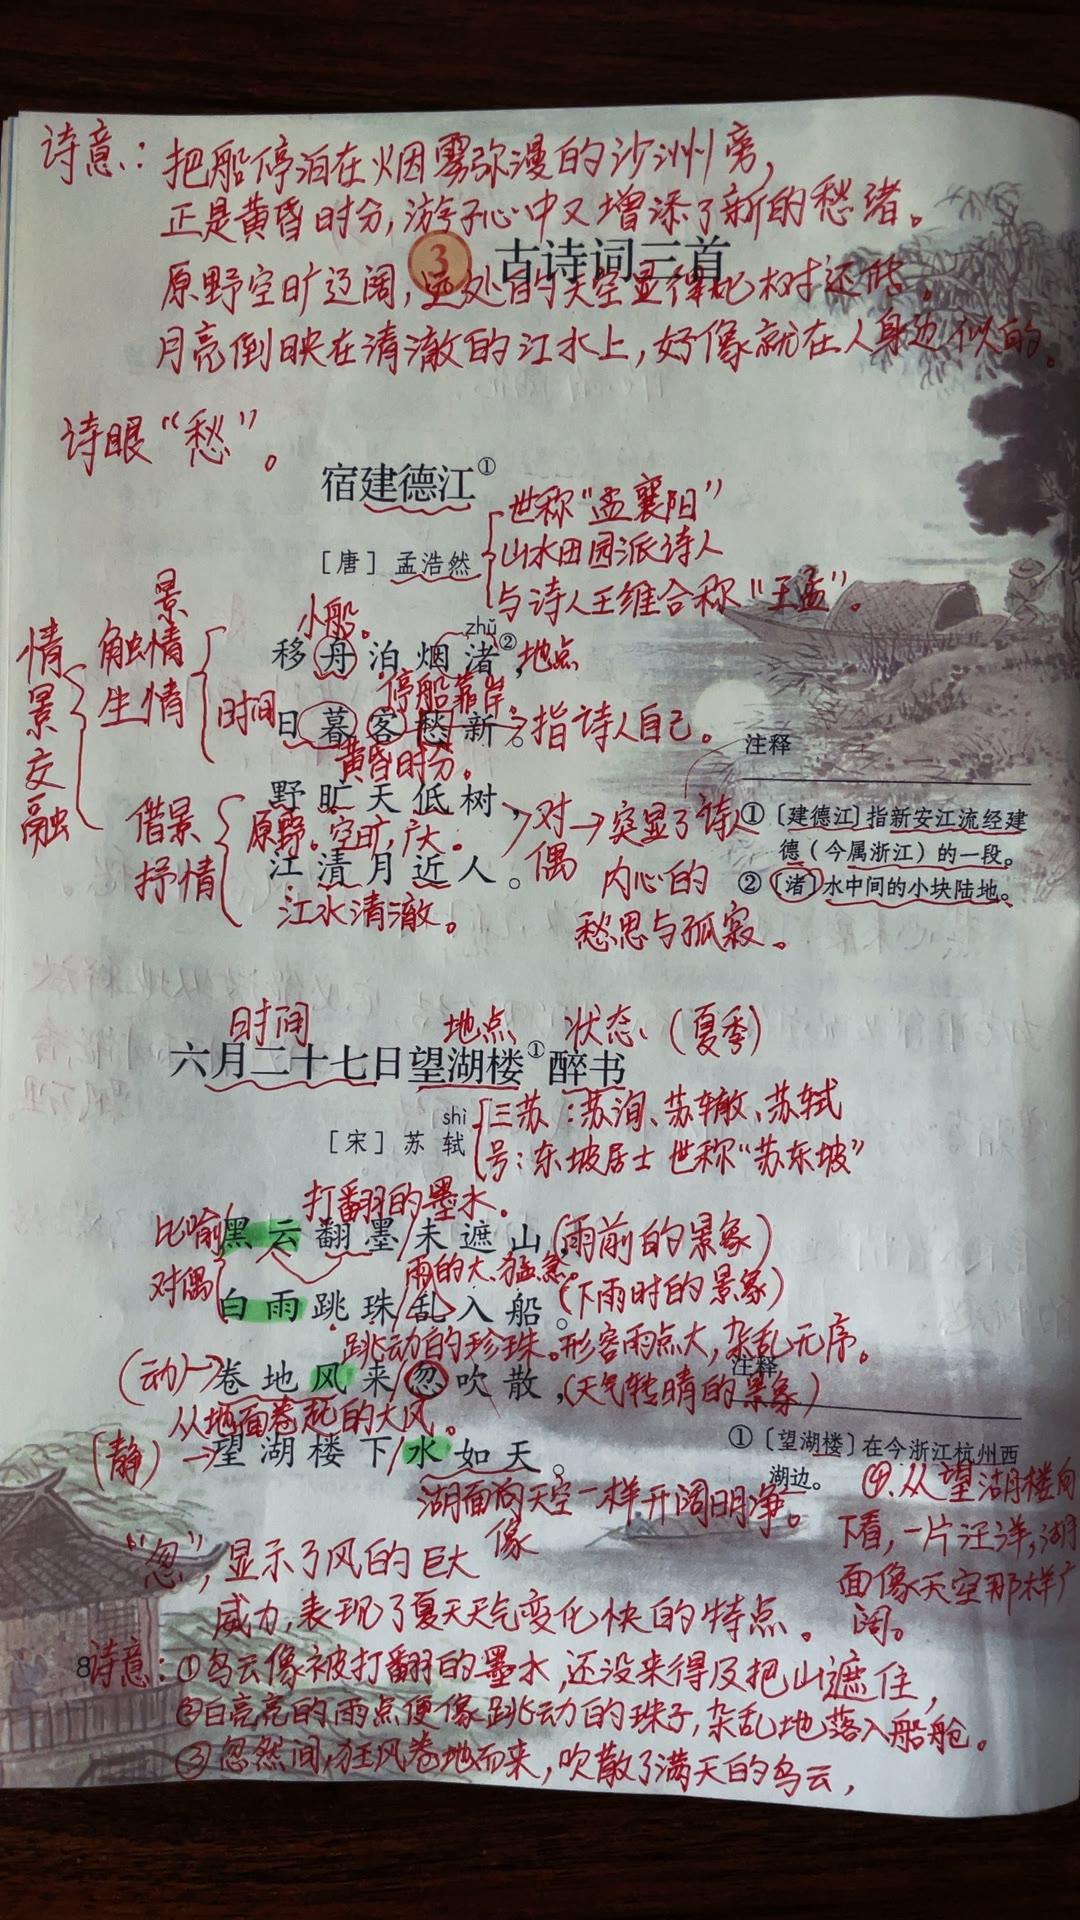 诗意：把船停泊在烟雾弥漫的沙洲旁，
正是黄昏时分，游子心中又增添了新的愁绪。
3 古诗词三首
原野空旷辽阔，远处的天空显得比树还低。
月亮倒映在清澈的江水上，好像就在人身边似的。
诗眼“愁”。
宿建德江①
世称“孟襄阳”
[唐] 孟浩然
山水田园派诗人
与诗人王维合称“王孟”。
情景交融
触景生情
小船。
zhǔ
移舟泊烟渚②，地点
停船靠岸。
时间
日暮客愁新。指诗人自己。
黄昏时分。
借景抒情
野旷天低树，
原野。空旷，广大。
江清月近人。
江水清澈。
对偶→突显了诗人
内心的
愁思与孤寂。
注释
①〔建德江〕指新安江流经建
德（今属浙江）的一段。
②〔渚〕水中间的小块陆地。
时间 地点 状态（夏季）
六月二十七日望湖楼①醉书
shì
[宋] 苏轼
三苏：苏洵、苏辙、苏轼
号：东坡居士 世称“苏东坡”
打翻的墨水。
比喻
黑云翻墨/未遮山，（雨前的景象）
对偶
雨的大、猛急。
白雨跳珠/乱入船。（下雨时的景象）
跳动的珍珠。形容雨点大，杂乱无序。
（动）→卷地风来/忽吹散，（天气转晴的景象）
从地面卷起的大风。
（静）→望湖楼下/水如天。
湖面向天空一样开阔明净。
像
注释
①〔望湖楼〕在今浙江杭州西
湖边。
“忽”，显示了风的巨大
威力，表现了夏天天气变化快的特点。
8
诗意：①乌云像被打翻的墨水，还没来得及把山遮住，
②白亮亮的雨点便像跳动的珠子，杂乱地落入船舱。
③忽然间，狂风卷地而来，吹散了满天的乌云，
④.从望湖楼向
下看，一片汪洋，湖
面像天空那样广
阔。